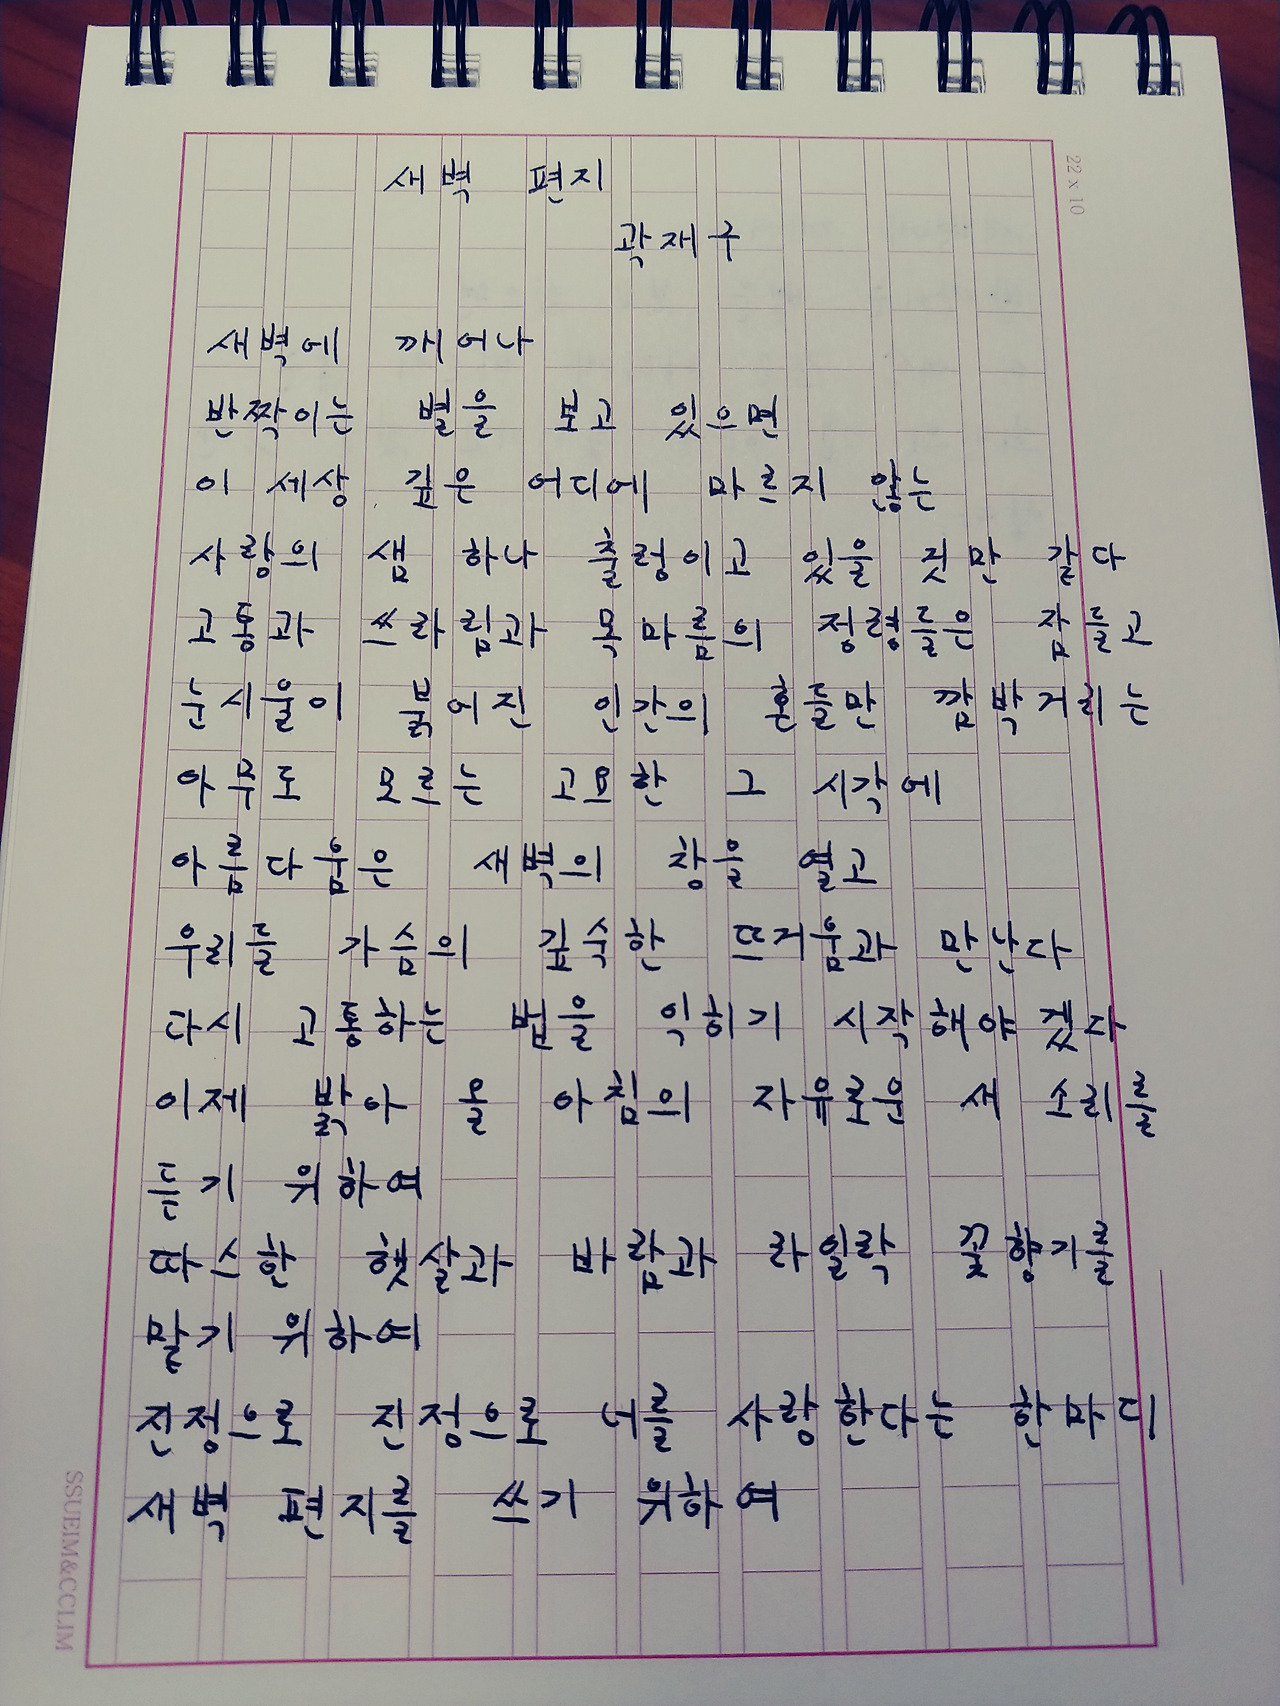 새벽 편지
곽재구
새벽에 깨어나
반짝이는 별을 보고 있으면
이 세상 깊은 어디에 마르지 않는
사랑의 샘 하나 출렁이고 있을 것만 같다
고통과 쓰라림과 목마름의 정령들은 잠들고
눈시울이 붉어진 인간의 혼들만 깜박거리는
아무도 모르는 고요한 그 시각에
아름다움은 새벽의 창을 열고
우리들 가슴의 깊숙한 뜨거움과 만난다
다시 고통하는 법을 익히기 시작해야겠다
이제 밝아 올 아침의 자유로운 새 소리를
듣기 위하여
따스한 햇살과 바람과 라일락 꽃향기를
맡기 위하여
진정으로 진정으로 너를 사랑한다는 한마디
새벽 편지를 쓰기 위하여
22 x 10
SSUEIM&CCLIM